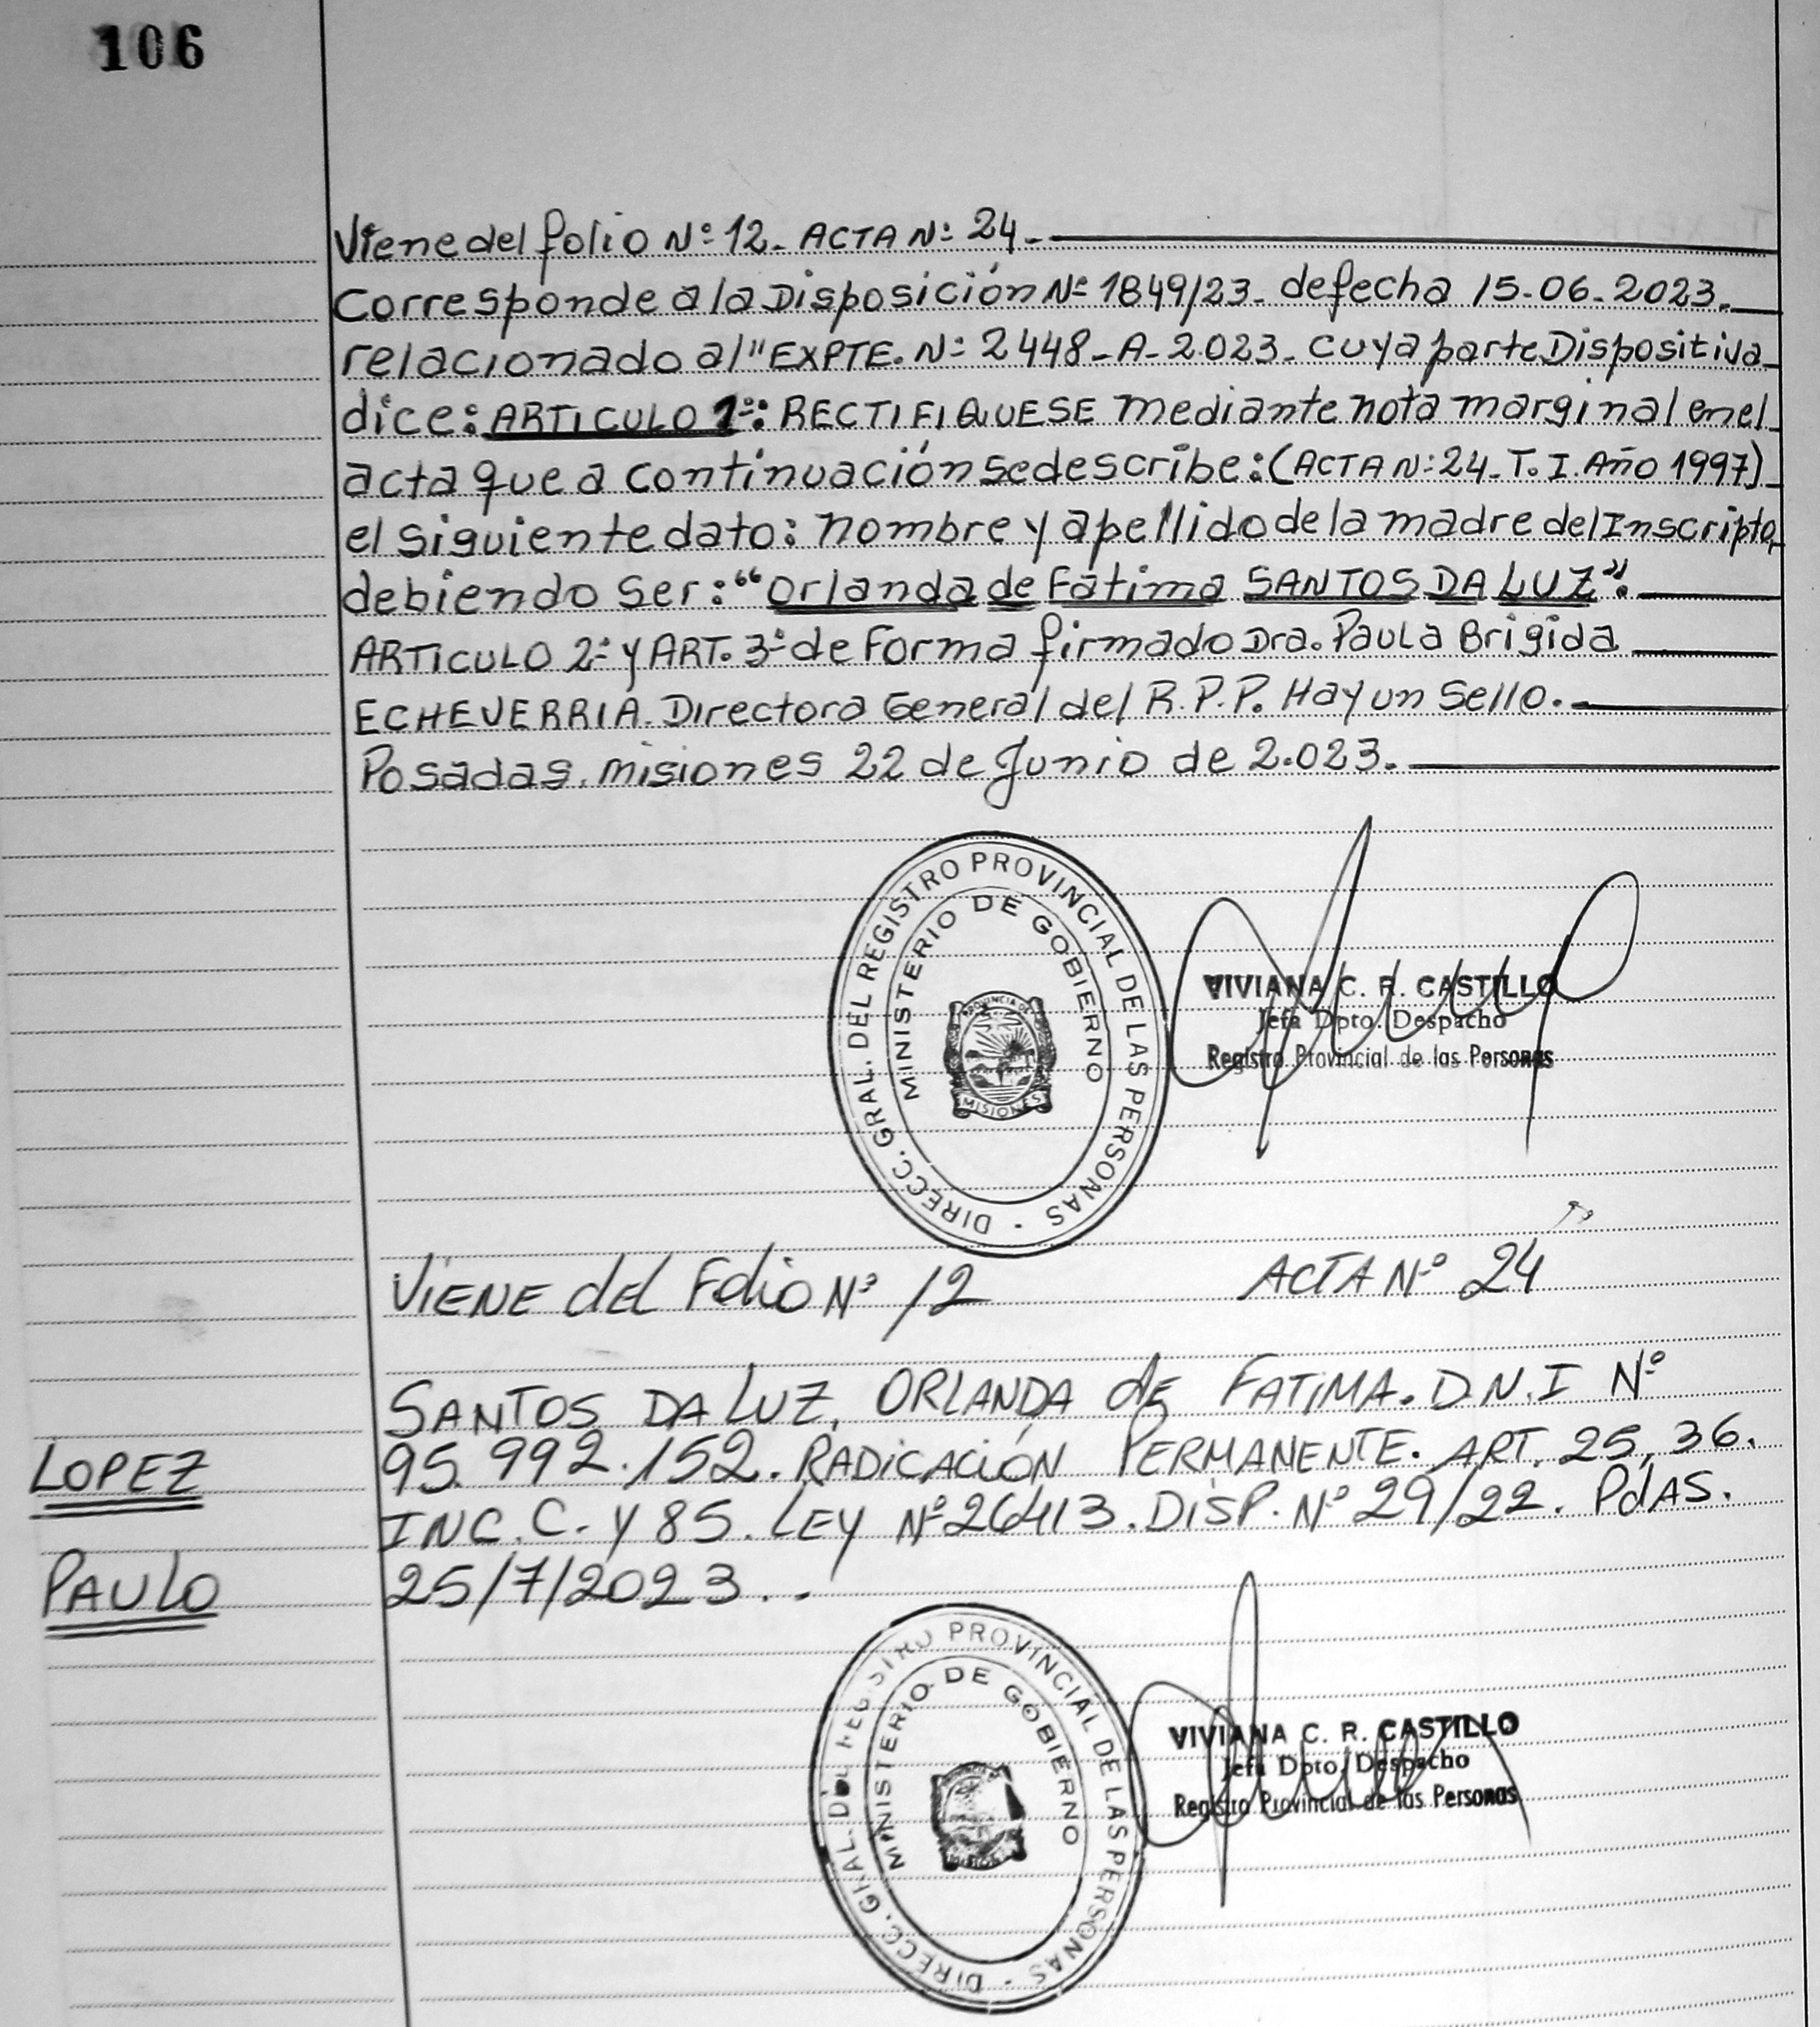 106
Viene del folio Nº 12. ACTA Nº 24.
Corresponde a la Disposición Nº 1849/23. de fecha 15.06.2023.
relacionado al "EXPTE. Nº 2448-A-2023. cuya parte Dispositiva
dice: ARTICULO 1º: RECTIFIQUESE mediante nota marginal en el
acta que a continuación se describe: (ACTA Nº 24. T. I. Año 1997)
el siguiente dato: nombre y apellido de la madre del Inscripto,
debiendo ser: "Orlanda de Fátima SANTOS DA LUZ".
ARTICULO 2º y ART. 3º de Forma firmado Dra. Paula Brigida
ECHEVERRIA. Directora General del R.P.P. Hay un Sello.
Posadas, misiones 22 de Junio de 2.023.
DIRECC. GRAL. DEL REGISTRO PROVINCIAL DE LAS PERSONAS
MINISTERIO DE GOBIERNO
PROVINCIA DE
MISIONES
VIVIANA C. R. CASTILLO
Jefa Dpto. Despacho
Registro Provincial de las Personas
VIENE del Folio Nº 12 ACTA Nº 24
SANTOS DA LUZ, ORLANDA de FATIMA. D.N.I Nº
LOPEZ 95.992.152. RADICACIÓN PERMANENTE. ART. 25, 36.
INC. C. Y 85. LEY Nº 26413. DISP. Nº 29/22. PdAS.
PAULO 25/7/2023..
DIRECC. GRAL. DEL REGISTRO PROVINCIAL DE LAS PERSONAS
MINISTERIO DE GOBIERNO
VIVIANA C. R. CASTILLO
Jefa Dpto. Despacho
Registro Provincial de las Personas